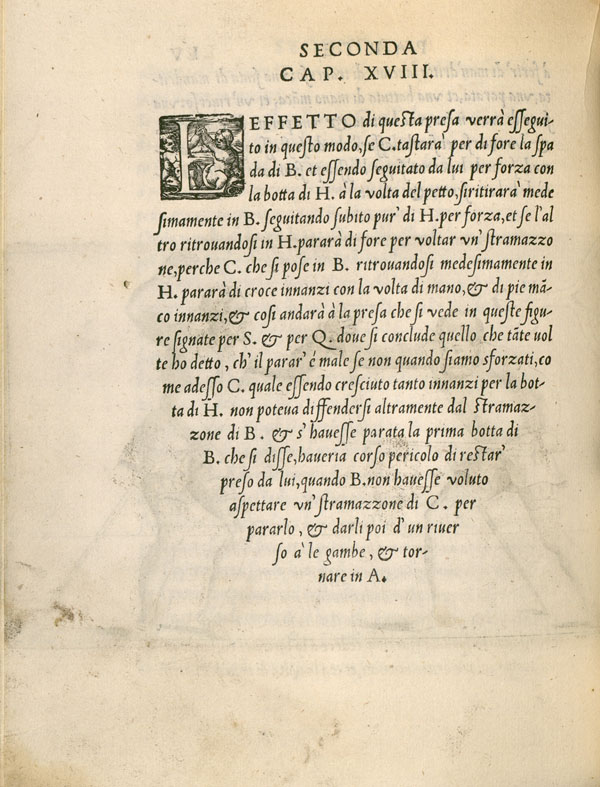 SECONDA
CAP. XVIII.
L EFFETTO di questa presa verrà essegui-
to in questo modo, se C. tastarà per di fore la spa
da di B. et essendo seguitato da lui per forza con
la botta di H. à la volta del petto, si ritirarà mede
simamente in B. seguitando subito pur' di H. per forza, et se l'al
tro ritrouandosi in H. pararà di fore per voltar vn' stramazzo
ne, perche C. che si pose in B. ritrouandosi medesimamente in
H. pararà di croce innanzi con la volta di mano, & di pie mã
co innanzi, & cosi andarà à la presa che si vede in queste figu
re signate per S. & per Q. doue si conclude quello che tãte uol
te ho detto, ch' il parar' é male se non quando siamo sforzati, co
me adesso C. quale essendo cresciuto tanto innanzi per la bot-
ta di H. non poteua diffendersi altramente dal stramaz-
zone di B. & s' hauesse parata la prima botta di
B. che si disse, haueria corso pericolo di restar'
preso da lui, quando B. non hauesse voluto
aspettare vn' stramazzone di C. per
pararlo, & darli poi d' un riuer
so à le gambe, & tor-
nare in A.